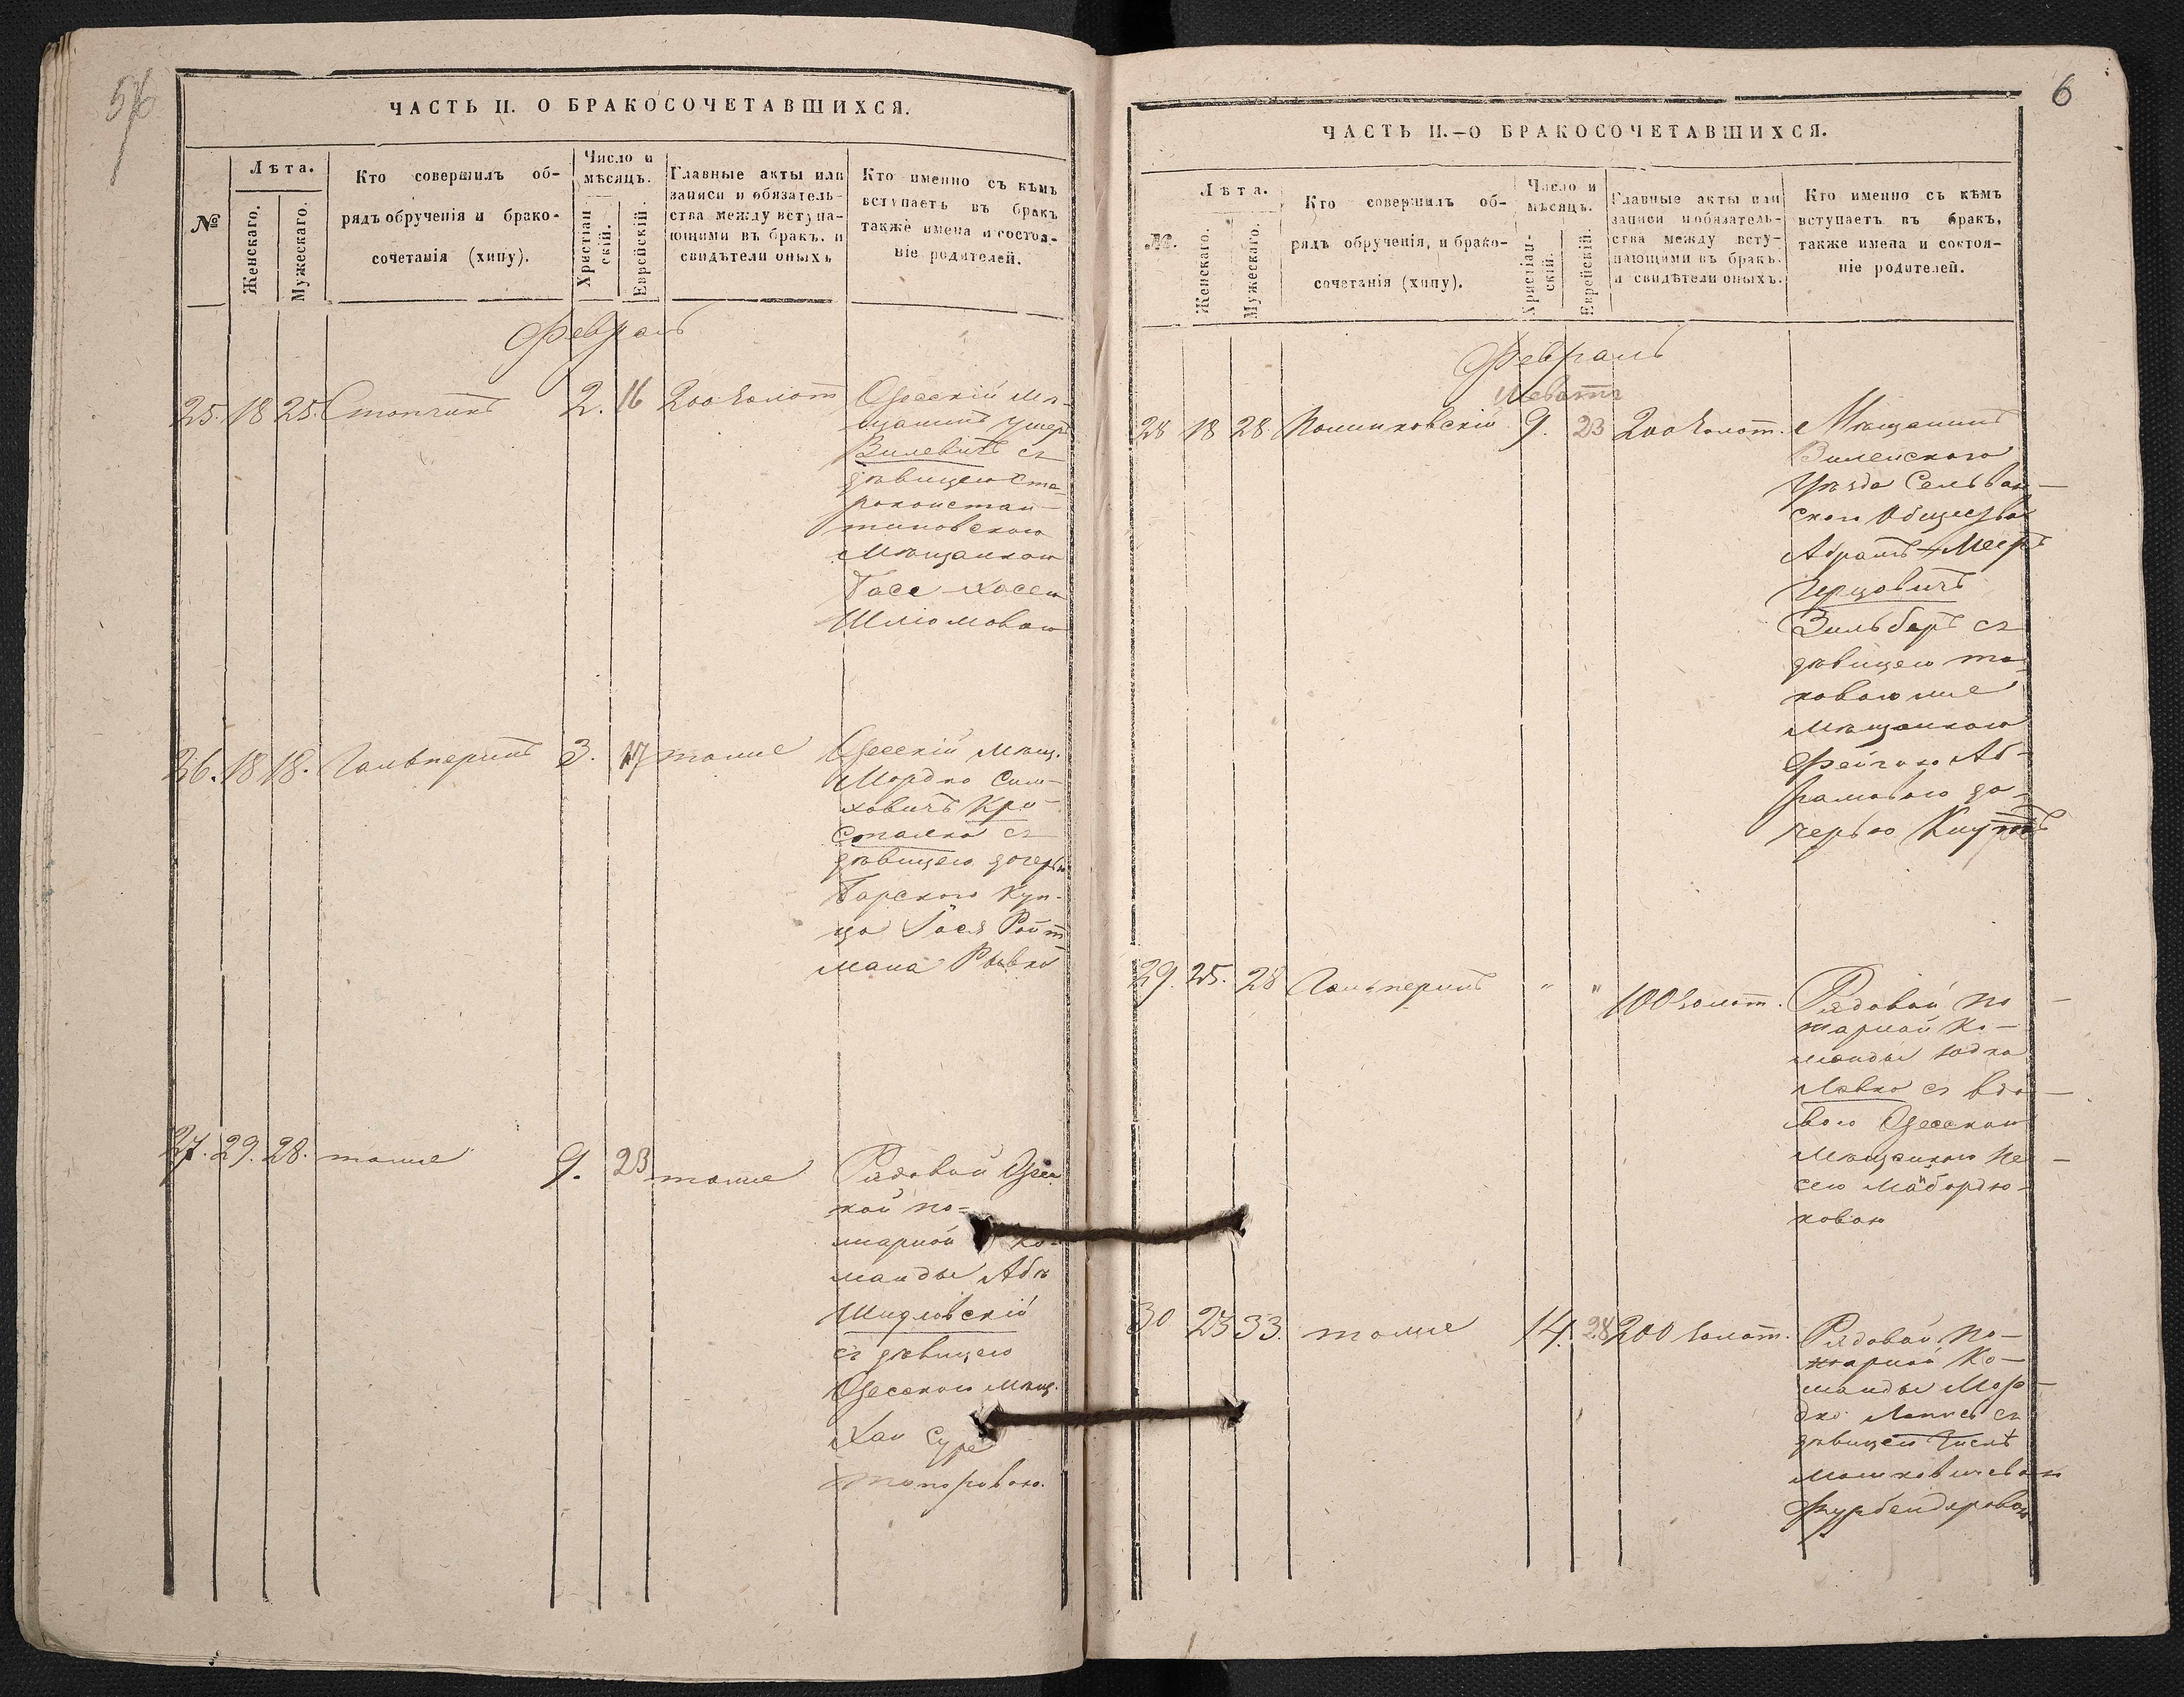 ЧАСТЬ II. О БРАКОСОЧЕТАВШИХСЯ.
№
Лѣта.
Женскаго.
Мужескаго.
Кто совершилъ об-
рядъ обрученія и брако-
сочетанія (хипу).
Число и
мѣсяцъ.
Христіан
скій.
Еврейскій.
Главные акты или
записи и обязатель-
ства между вступа-
ющими въ бракъ. и
свидѣтели оныхъ
Кто именно съ кѣмъ
вступаетъ въ бракъ
также имена и состоя-
ніе родителей.
Февраль
25. 18 25. 2. 16 200 золот
Одесскій мѣ-
щанинъ Ушеръ
Вилевитъ съ
дѣвицею Ста-
роконстан-
тиновскою
мѣщанкою
Басе-Хасею
Шлiомовою
26. 18 18. Гальперинъ 3. 17 тоже
Одесскій мѣщ.
Мордко Сим-
ховичъ Кри-
сталка съ
дѣвицею дочерью
Барского куп-
ца Іося Ройт-
мана Рывко
27. 29. 28. тоже 9. 23 тоже
Рядовой Одес
кой по-
жарной ко-
манды Аба
Шидловскій
съ дѣвицею
Одесскою мѣщ.
Хаи Суре
Топоровою.
6
ЧАСТЬ II.–О БРАКОСОЧЕТАВШИХСЯ.
№.
Лѣта.
Женскаго.
Мужескаго.
Кто совершилъ об-
рядъ обрученія, и брако-
сочетанія (хипу).
Число и
мѣсяцъ.
Христіан-
скій.
Еврейскій.
Главные акты или
записи и обязатель-
ства между всту-
пающими въ бракъ.
и свидѣтели оныхъ.
Кто именно съ кѣмъ
вступаетъ въ бракъ,
также имена и состоя-
ніе родителей.
Февраль
Шевотъ
28 18 28. 9. 23 200 золот.
Мѣщанинъ
Виленского
Уѣзда
ского Общества
Абрамъ-Мееръ
Герцовичъ
Зильберъ съ
дѣвицею та-
ковою же
мѣщанкою
Фейгою Аб-
рамовою до-
черью
29. 25. 28 Гальперинъ " " 100 золот.
Рядовой по
жарной ко-
манды Юдка
Левко съ вдо-
вою Одесскою
мѣщанкою Пе-
сею Майбордю-
ковою
30 23 33. тоже 14. 28 200 золот.
Рядовой по-
жарной ко-
манды Мор-
дко съ
дѣвицею
Мошковичевою
Фурбендяровою